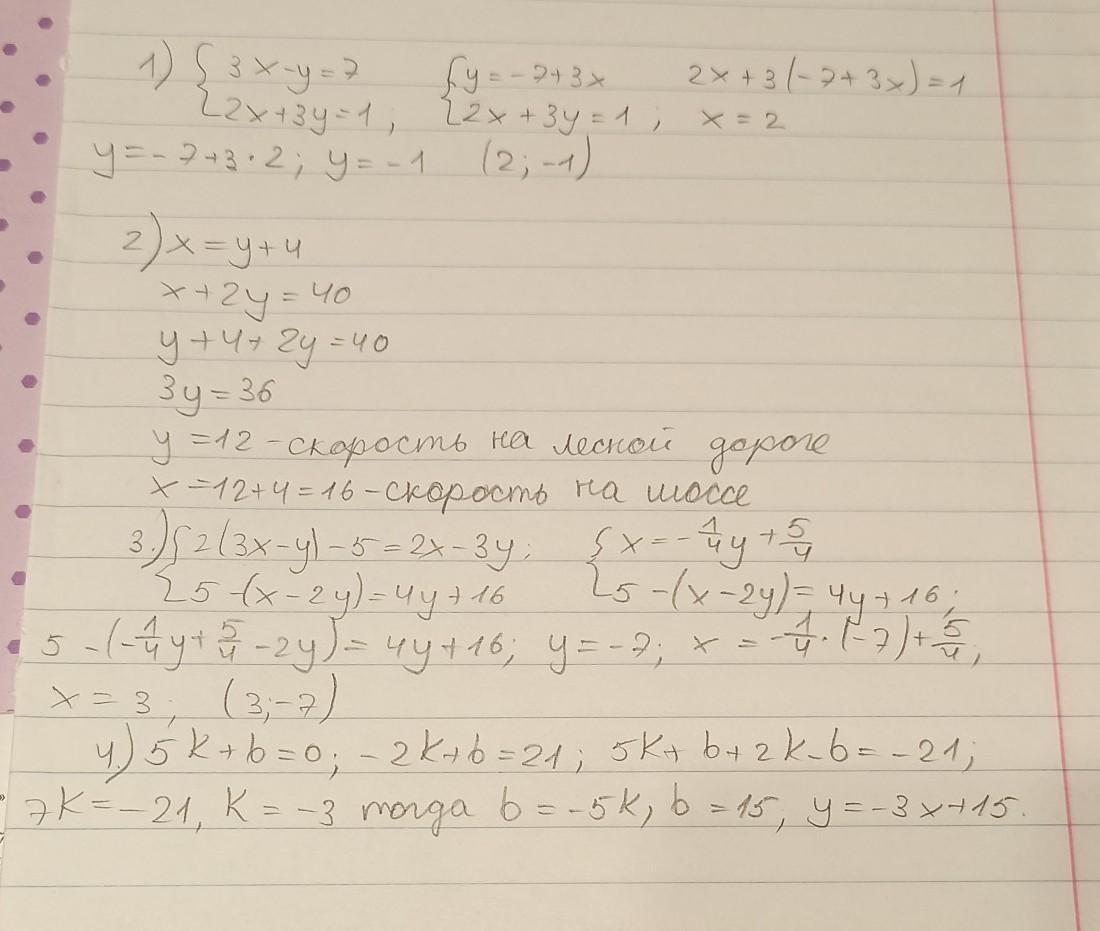 1) { 3x-y=7   { y=-7+3x   2x+3(-7+3x)=1
{ 2x+3y=1,   { 2x+3y=1;   x=2
y=-7+3·2; y=-1   (2;-1)
2) x=y+4
x+2y=40
y+4+2y=40
3y=36
y=12-скорость на лесной дороге
x=12+4=16-скорость на шоссе
3.) { 2(3x-y)-5=2x-3y;   { x=-1/4y+5/4
{ 5-(x-2y)=4y+16   { 5-(x-2y)=4y+16;
5-(-1/4y+5/4-2y)=4y+16; y=-7; x=-1/4·(-7)+5/4,
x=3; (3;-7)
4.) 5k+b=0; -2k+b=21; 5k+b+2k-b=-21;
7k=-21, k=-3 тогда b=-5k, b=15, y=-3x+15.